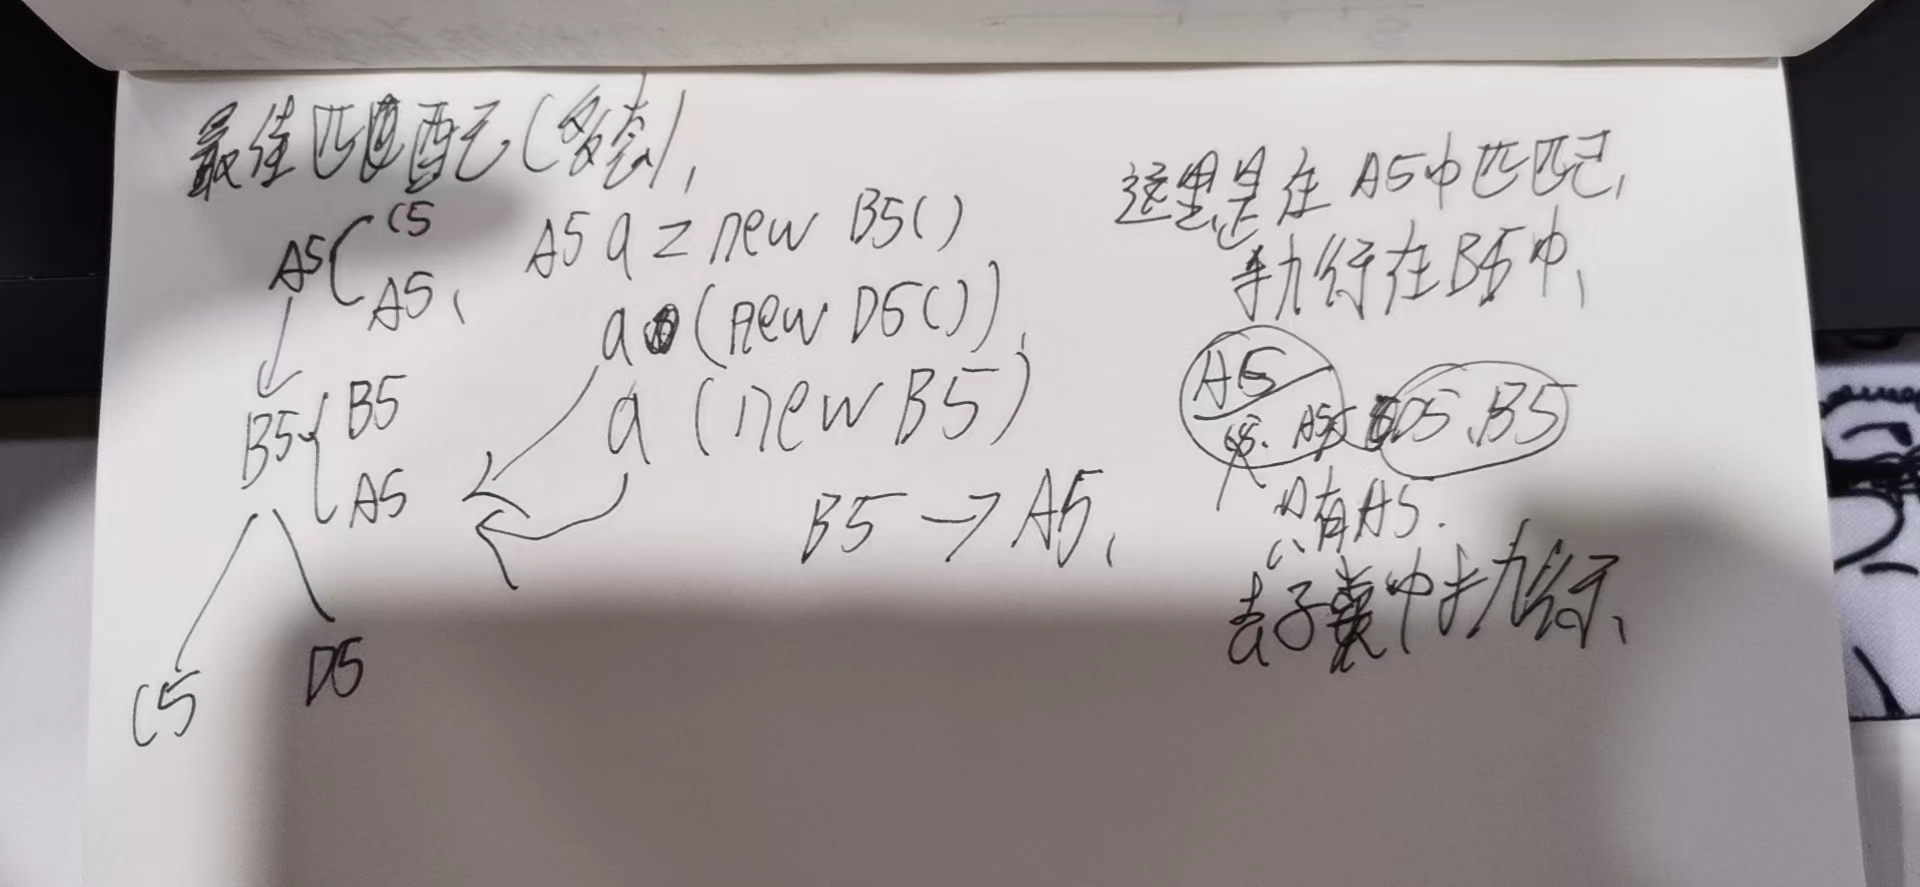 最佳匹配(多态),
A5 C5
A5,
A5 a = new B5()
a (new D5()),
a (new B5)
B5 B5
A5
B5 → A5,
C5 D5
这里是在A5中匹配,
执行在B5中,
A5
C5. A5 D5、B5
只有A5.
去子类中执行、